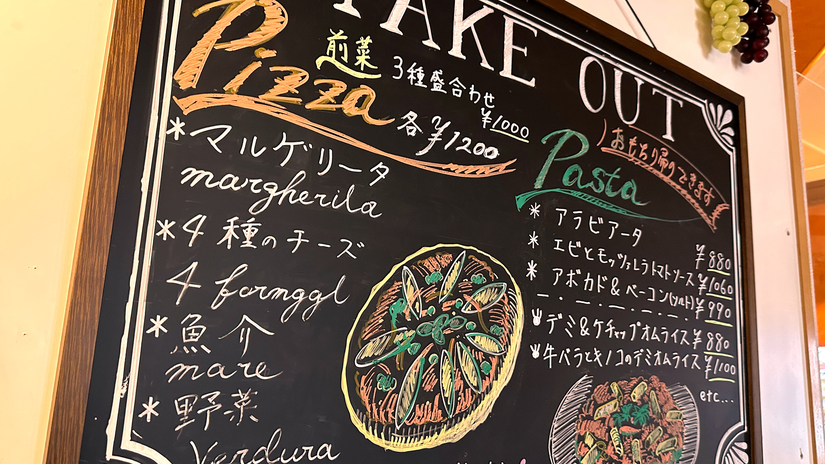 TAKE OUT
Pizza
前菜
3種盛合わせ
¥1000
各¥1200
*マルゲリータ
margherita
*4種のチーズ
4 fornggl
*魚介
mare
*野菜
Verdura
おもち帰りできます
Pasta
*アラビアータ ¥880
*エビとモッツァレラトマトソース ¥1060
*アボカド&ベーコン(ソルト) ¥990
デミ&ケチャップオムライス ¥880
牛バラとキノコのデミオムライス ¥1100
etc...